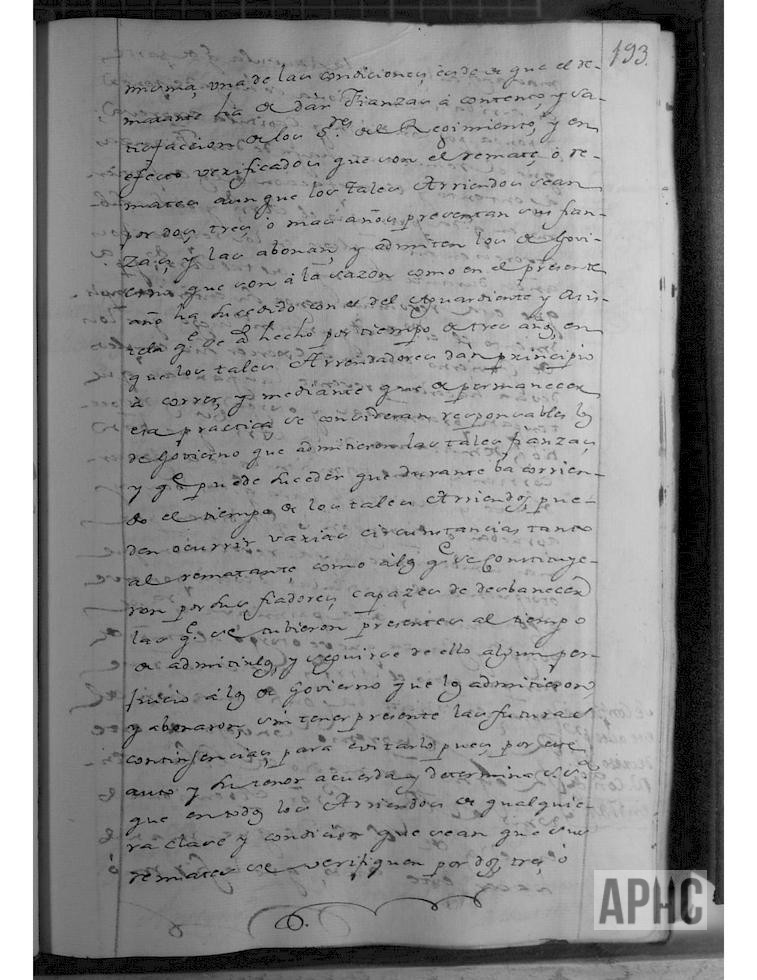 193.
misma, una de las condiciones, es de q.e el re-
matante ha de dár Fianzas á contento, y sa-
tisfaccion de los S.res del Regimiento, y en
efecto verificados que son el remate, ó re-
mates aunque los tales Arriendos sean
por dos, tres, ó mas años, presentan sus fian-
zas, y las abonan, y admiten los de Govi-
erno que son á la sazón como en el presente
año ha sucedido con el del Aguardiente y
que se há hecho por tiempo de tres años, en
que los tales Arrendadores dán principio
á correr, y mediante que de permanecer
esta practica se consideran responsables los
de Govierno que admitieron las tales fianzas,
y q.e puede suceder que durante ba corrien-
do el tiempo de los tales Arriendos, pue-
den ocurrir varias circunstancias, tanto
al rematante, como álos q.e se Constituye-
ron por sus fiadores, capazes de desbanecer
las q.e se tubieron presentes al tiempo
de admitirlos, y seguirse de ello algun per-
juicio álos de Govierno que los admitieron
y abonaron, sin tener presente las futuras
contingencias, para evitarlo pues, por este
auto y su tenor acuerda y determina S.S.a
que en todos los Arriendos de qualquie-
ra clase y condicion que sean que sus
remates se verifiquen por dos, tres, ó
APHC